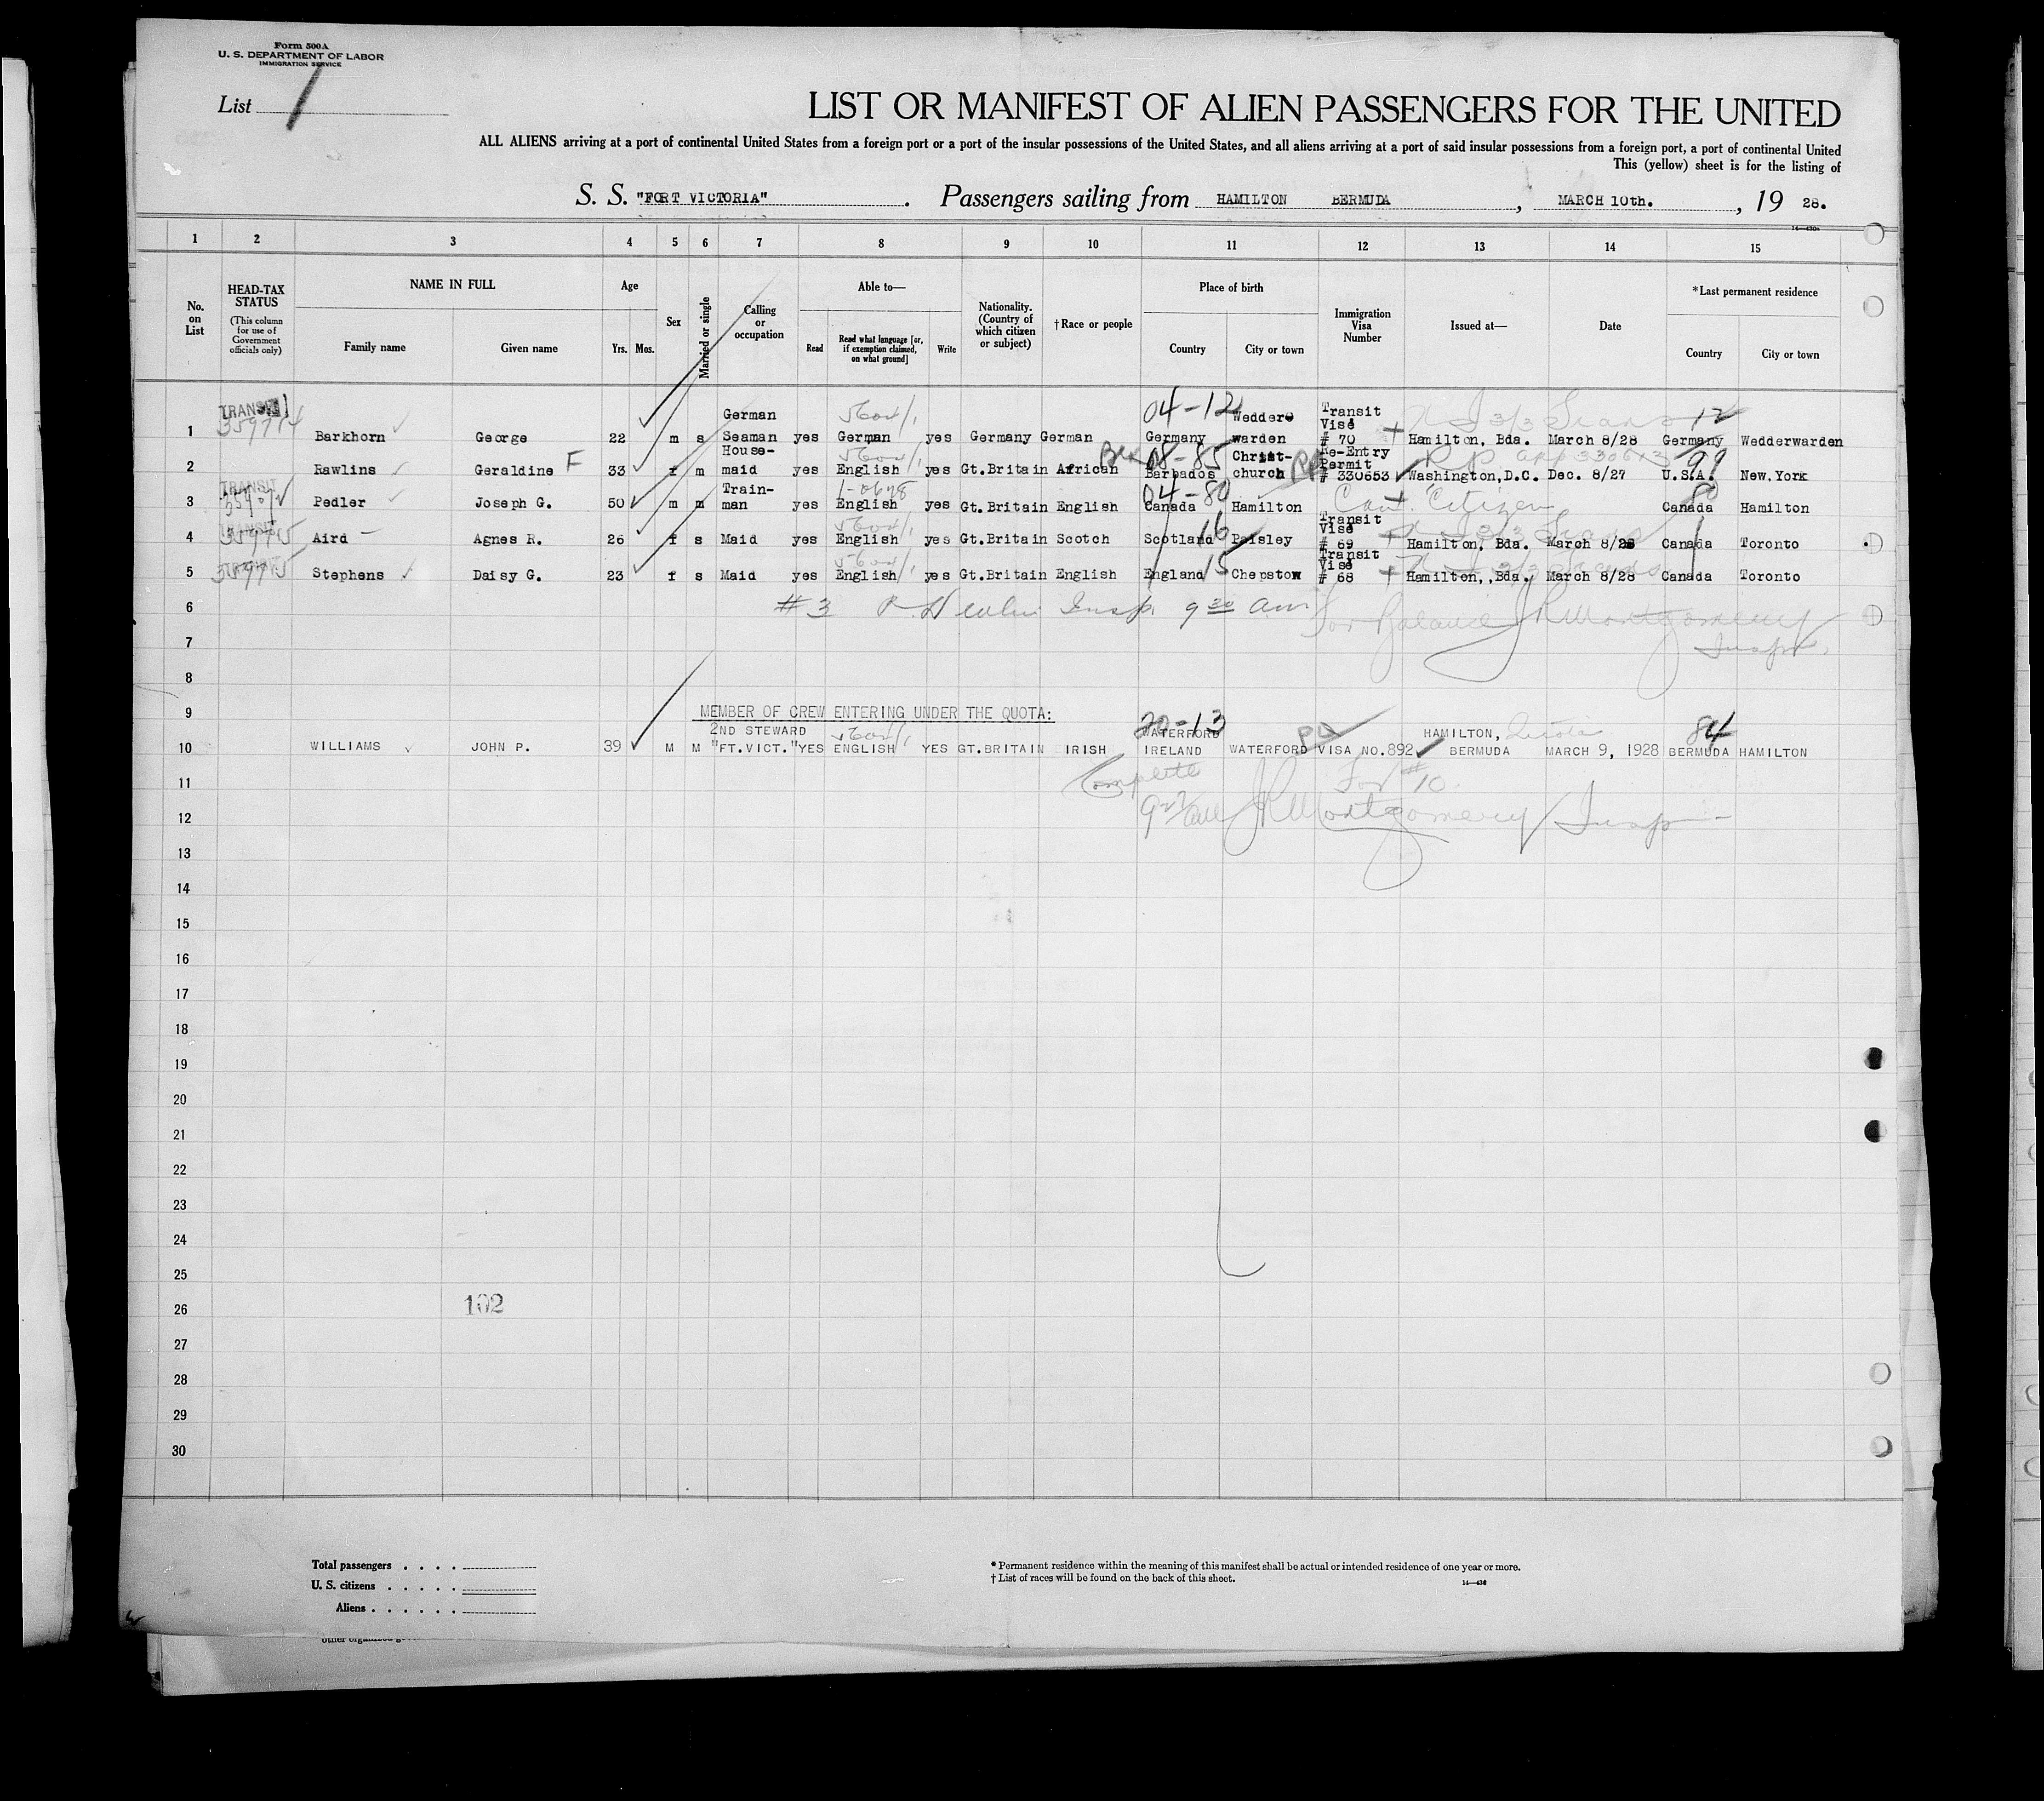 Form 500A
U. S. DEPARTMENT OF LABOR
IMMIGRATION SERVICE
List 1
LIST OR MANIFEST OF ALIEN PASSENGERS FOR THE UNITED
ALL ALIENS arriving at a port of continental United States from a foreign port or a port of the insular possessions of the United States, and all aliens arriving at a port of said insular possessions from a foreign port, a port of continental United
This (yellow) sheet is for the listing of
S. S. "FORT VICTORIA" . Passengers sailing from HAMILTON BERMUDA , MARCH 10th. , 19 28.
1 2 3 4 5 6 7 8 9 10 11 12 13 14 15
No. on List
HEAD-TAX STATUS (This column for use of Government officials only)
NAME IN FULL Family name Given name
Age Yrs. Mos.
Sex
Married or single
Calling or occupation
Able to— Read Read what language [or, if exemption claimed, on what ground] Write
Nationality. (Country of which citizen or subject)
†Race or people
Place of birth Country City or town
Immigration Visa Number
Issued at—
Date
*Last permanent residence Country City or town
TRANSIT German 04-12 Wedder= Transit Visé 12
1 Barkhorn George 22 m s Seaman yes German yes Germany German Germany warden # 70 Hamilton, Bda. March 8/28 Germany Wedderwarden
House- 08-85 Christ- Re-Entry Permit RP 99
2 Rawlins Geraldine F 33 f m maid yes English yes Gt.Britain African Barbados church # 330653 Washington,D.C. Dec. 8/27 U.S.A. New.York
TRANSIT Train- 04-80 Can. Citizen 80
3 Pedler Joseph G. 50 m m man yes English yes Gt.Britain English Canada Hamilton Canada Hamilton
TRANSIT 16 Transit Visé
4 Aird Agnes R. 26 f s Maid yes English yes Gt.Britain Scotch Scotland Paisley # 69 Hamilton, Bda. March 8/28 Canada Toronto
TRANSIT 15 Transit Visé
5 Stephens Daisy G. 23 f s Maid yes English yes Gt.Britain English England Chepstow # 68 Hamilton,,Bda. March 8/28 Canada Toronto
6 # 3 Insp. 9 30 am. For Balance JR Montgomery
7 Insp.
8
9 MEMBER OF CREW ENTERING UNDER THE QUOTA:
2ND STEWARD 20-13 WATERFORD HAMILTON, Quota 84
10 WILLIAMS JOHN P. 39 M M "FT.VICT." YES ENGLISH YES GT.BRITAIN IRISH IRELAND WATERFORD VISA NO.892 BERMUDA MARCH 9, 1928 BERMUDA HAMILTON
11 Complete For #10.
12 JR Montgomery Insp
13
14
15
16
17
18
19
20
21
22
23
24
25
26 102
27
28
29
30
Total passengers
U. S. citizens
Aliens
* Permanent residence within the meaning of this manifest shall be actual or intended residence of one year or more.
† List of races will be found on the back of this sheet.